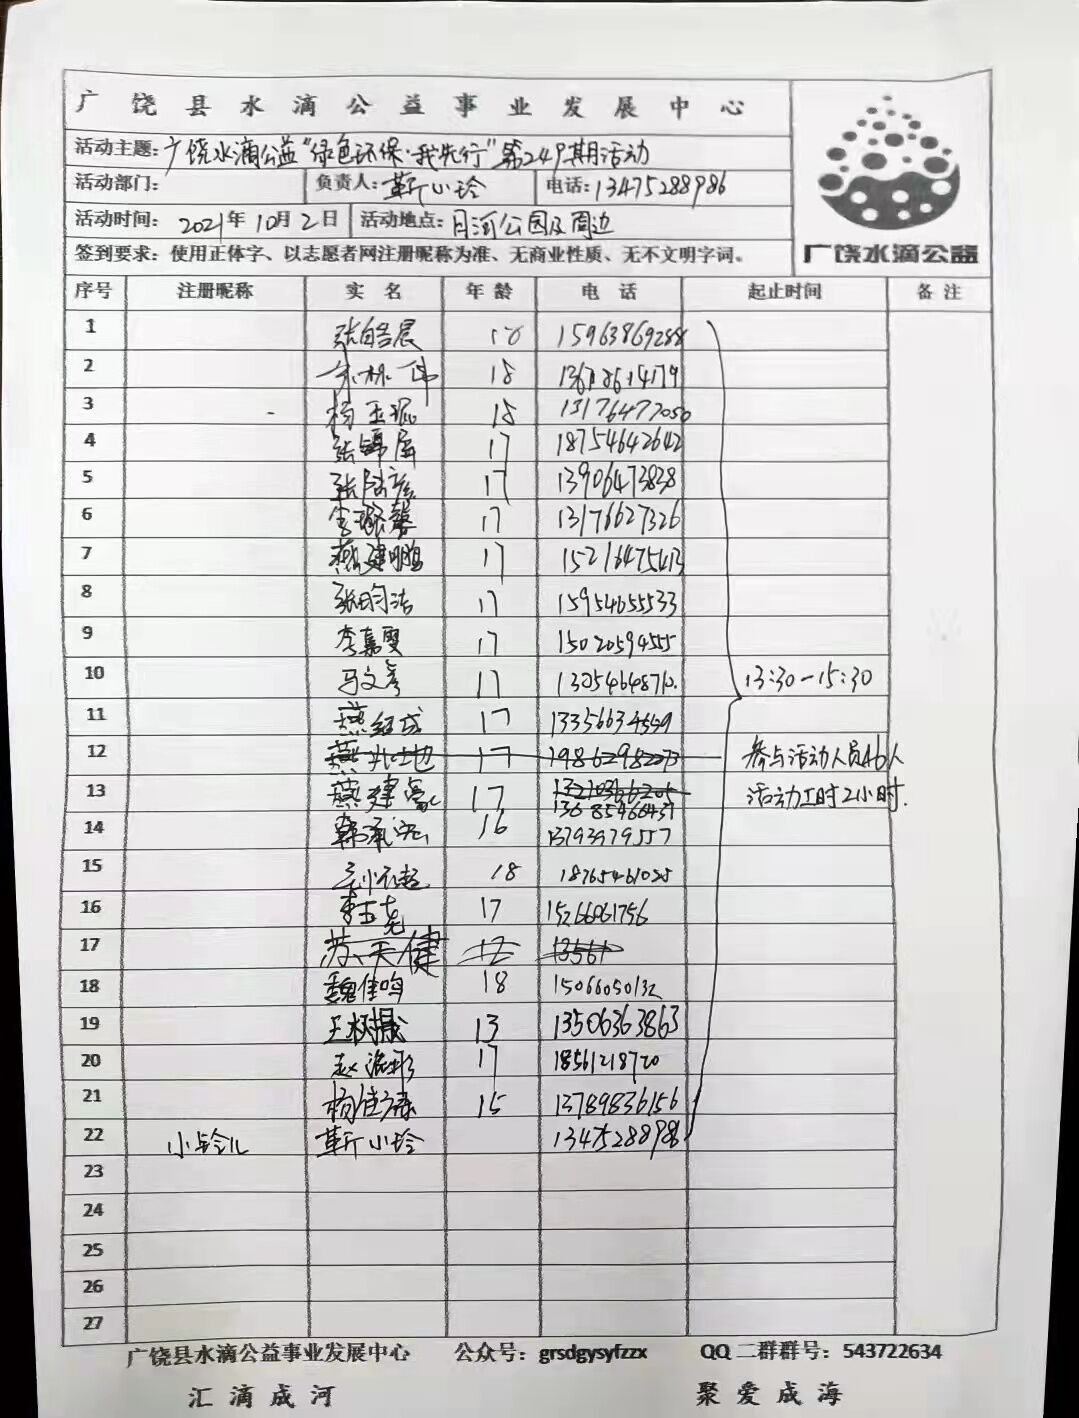 广饶县水滴公益事业发展中心
活动主题:广饶水滴公益“绿色环保·我先行”第249期活动
活动部门: 负责人:靳小玲 电话:13475288986
活动时间: 2021年10月2日 活动地点:月河公园及周边
签到要求:使用正体字、以志愿者网注册昵称为准、无商业性质、无不文明字词。
广饶水滴公益
序号 注册昵称 实名 年龄 电话 起止时间 备注
1 张皓晨 15963869288
2 18
3 18 13176477050
4 张锦屏 17 18754642642
5 17 13906473838
6 李璐馨 17 13176627326
7 燕建鹏 17 15216475413
8 张昀洁 17 15954655533
9 李嘉雯 17 15020594555
10 马文彦 17 13054648710 13:30-15:30
11 燕绍成 17 13356634559
12 17 19862982273 参与活动人员46人
13 燕建豪 17 13210366205 活动工时2小时.
13685466437
14 韩承宏 16 13793979557
15 18 18765461025
16 17 15266061756
17 苏天健 13561
18 魏佳鸣 18 15066050132
19 13 13506363863
20 17 18561218720
21 杨佳霖 15 13789836156
22 小玲儿 靳小玲 13475288986
23
24
25
26
27
广饶县水滴公益事业发展中心 公众号:grsdgysyfzzx QQ二群群号:543722634
汇滴成河 聚爱成海